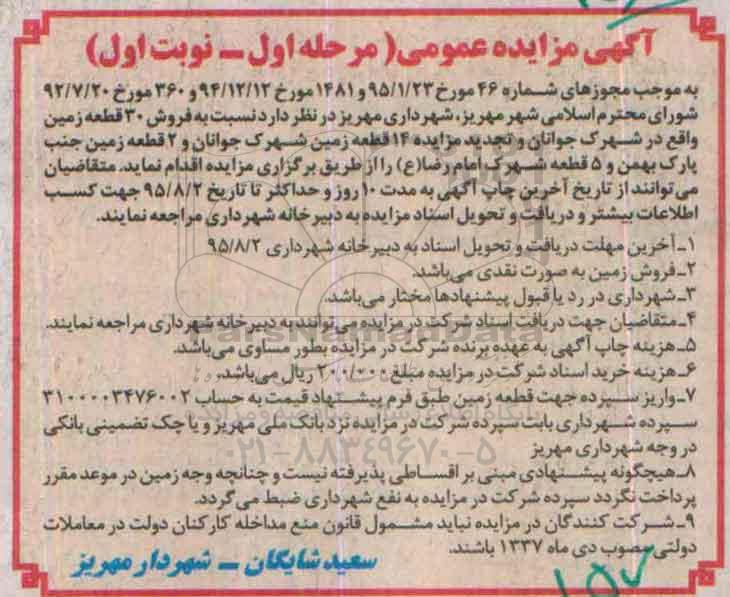 آگهی مزایده عمومی( مرحله اول ـ نوبت اول)
به موجب مجوزهای شماره ۴۶ مورخ ۹۵/۱/۲۳ و ۱۴۸۱ مورخ ۹۴/۱۲/۱۲ و ۳۶۰ مورخ ۹۲/۷/۲۰
شورای محترم اسلامی شهر مهریز، شهرداری مهریز در نظر دارد نسبت به فروش ۳۰ قطعه زمین
واقع در شهرک جوانان و تجدید مزایده ۱۴ قطعه زمین شهرک جوانان و ۲ قطعه زمین جنب
پارک بهمن و ۵ قطعه شهرک امام رضا(ع) را از طریق برگزاری مزایده اقدام نماید. متقاضیان
می‌توانند از تاریخ آخرین چاپ آگهی به مدت ۱۰ روز و حداکثر تا تاریخ ۹۵/۸/۲ جهت کسب
اطلاعات بیشتر و دریافت و تحویل اسناد مزایده به دبیرخانه شهرداری مراجعه نمایند.
۱ـ آخرین مهلت دریافت و تحویل اسناد به دبیرخانه شهرداری ۹۵/۸/۲
۲ـ فروش زمین به صورت نقدی می‌باشد.
۳ـ شهرداری در رد یا قبول پیشنهادها مختار می‌باشد.
۴ـ متقاضیان جهت دریافت اسناد شرکت در مزایده می‌توانند به دبیرخانه شهرداری مراجعه نمایند.
۵ـ هزینه چاپ آگهی به عهده برنده شرکت در مزایده بطور مساوی می‌باشد.
۶ـ هزینه خرید اسناد شرکت در مزایده مبلغ ۲۰۰/۰۰۰ ریال می‌باشد.
۷ـ واریز سپرده جهت قطعه زمین طبق فرم پیشنهاد قیمت به حساب ۳۱۰۰۰۰۳۴۷۶۰۰۲
سپرده شهرداری بابت سپرده شرکت در مزایده نزد بانک ملی مهریز و یا چک تضمینی بانکی
در وجه شهرداری مهریز
۰۲۱-۸۸۳۴۹۶۷۰-۵
۸ـ هیچگونه پیشنهادی مبنی بر اقساطی پذیرفته نیست و چنانچه وجه زمین در موعد مقرر
پرداخت نگردد سپرده شرکت در مزایده به نفع شهرداری ضبط می‌گردد.
۹ـ شرکت کنندگان در مزایده نباید مشمول قانون منع مداخله کارکنان دولت در معاملات
دولتی مصوب دی ماه ۱۳۳۷ باشند.
سعید شایگان ـ شهردار مهریز